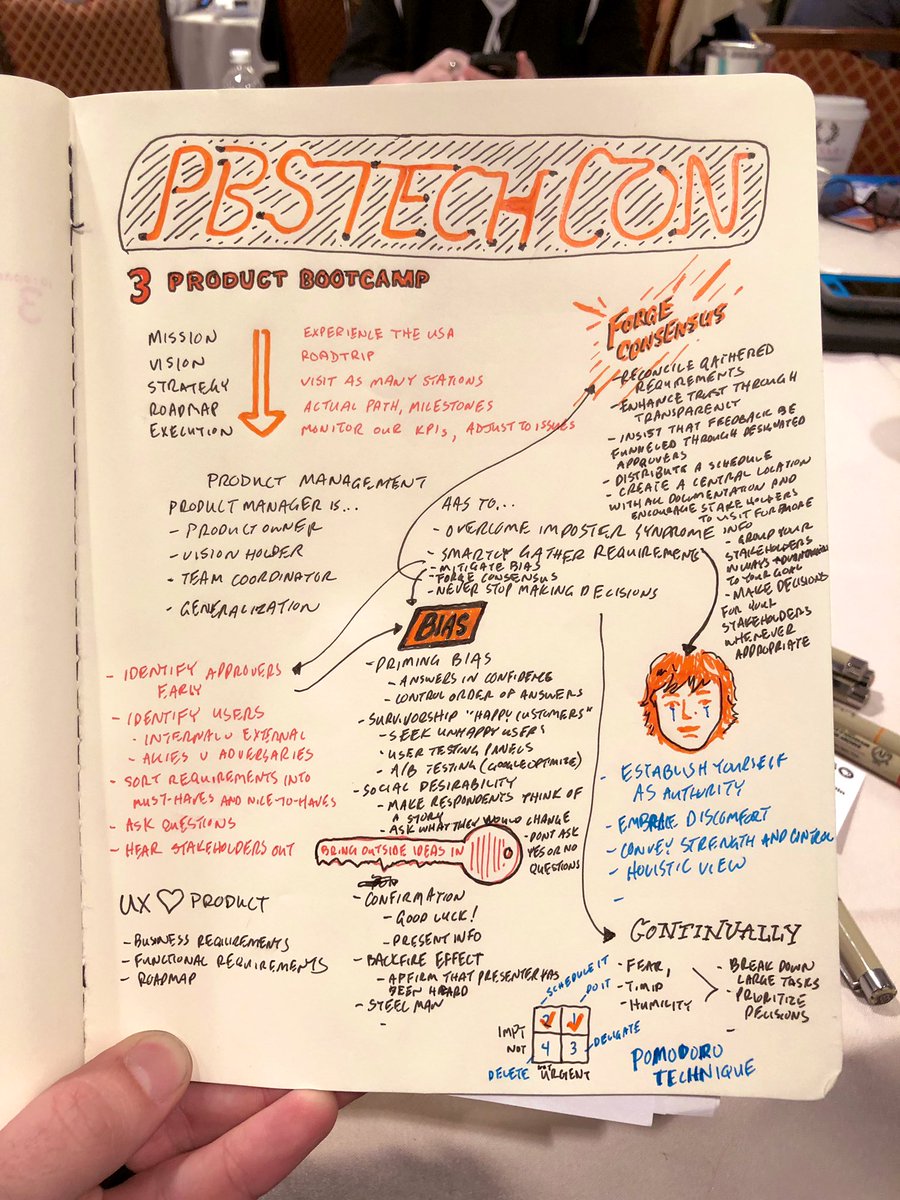 PBSTECHCON
3 PRODUCT BOOTCAMP
MISSION
VISION
STRATEGY
ROADMAP
EXECUTION
EXPERIENCE THE USA
ROADTRIP
VISIT AS MANY STATIONS
ACTUAL PATH, MILESTONES
MONITOR OUR KPIs, ADJUST TO ISSUES
FORGE
CONSENSUS
- RECONCILE GATHERED
REQUIREMENTS
- ENHANCE TRUST THROUGH
TRANSPARENCY
- INSIST THAT FEEDBACK BE
FUNNELED THROUGH DESIGNATED
APPROVERS
- DISTRIBUTE A SCHEDULE
- CREATE A CENTRAL LOCATION
WITH ALL DOCUMENTATION AND
ENCOURAGE STAKEHOLDERS
TO VISIT FOR MORE
INFO
- GROUP YOUR
STAKEHOLDERS
IN WAYS ADVANTAGEOUS
TO YOUR GOAL
- MAKE DECISIONS
FOR YOUR
STAKEHOLDERS
WHENEVER
APPROPRIATE
PRODUCT MANAGEMENT
PRODUCT MANAGER IS...
- PRODUCT OWNER
- VISION HOLDER
- TEAM COORDINATOR
- GENERALIZATION
HAS TO...
- OVERCOME IMPOSTER SYNDROME
- SMARTLY GATHER REQUIREMENT
- MITIGATE BIAS
- FORGE CONSENSUS
- NEVER STOP MAKING DECISIONS
- IDENTIFY APPROVERS
EARLY
- IDENTIFY USERS
· INTERNAL V EXTERNAL
- ALLIES V ADVERSARIES
- SORT REQUIREMENTS INTO
MUST-HAVES AND NICE-TO-HAVES
- ASK QUESTIONS
- HEAR STAKEHOLDERS OUT
BIAS
- PRIMING BIAS
- ANSWERS IN CONFIDENCE
- CONTROL ORDER OF ANSWERS
- SURVIVORSHIP "HAPPY CUSTOMERS"
- SEEK UNHAPPY USERS
- USER TESTING PANELS
- A/B TESTING (GOOGLE OPTIMIZE)
- SOCIAL DESIRABILITY
- MAKE RESPONDENTS THINK OF
A STORY
- ASK WHAT THEY WOULD CHANGE
- DONT ASK
YES OR NO
QUESTIONS
BRING OUTSIDE IDEAS IN
- CONFIRMATION
- GOOD LUCK!
- PRESENT INFO
- BACKFIRE EFFECT
- AFFIRM THAT PRESENTER HAS
BEEN HEARD
- STEEL MAN
-
- ESTABLISH YOURSELF
AS AUTHORITY
- EMBRACE DISCOMFORT
- CONVEY STRENGTH AND CONTROL
- HOLISTIC VIEW
-
UX ♡ PRODUCT
- BUSINESS REQUIREMENTS
- FUNCTIONAL REQUIREMENTS
- ROADMAP
CONTINUALLY
- FEAR,
- TIMID
- HUMILITY
- BREAK DOWN
LARGE TASKS
- PRIORITIZE
DECISIONS
-
SCHEDULE IT
DO IT
IMPT 2 1
NOT 4 3
DELIGATE
DELETE NOT URGENT
POMODORO
TECHNIQUE